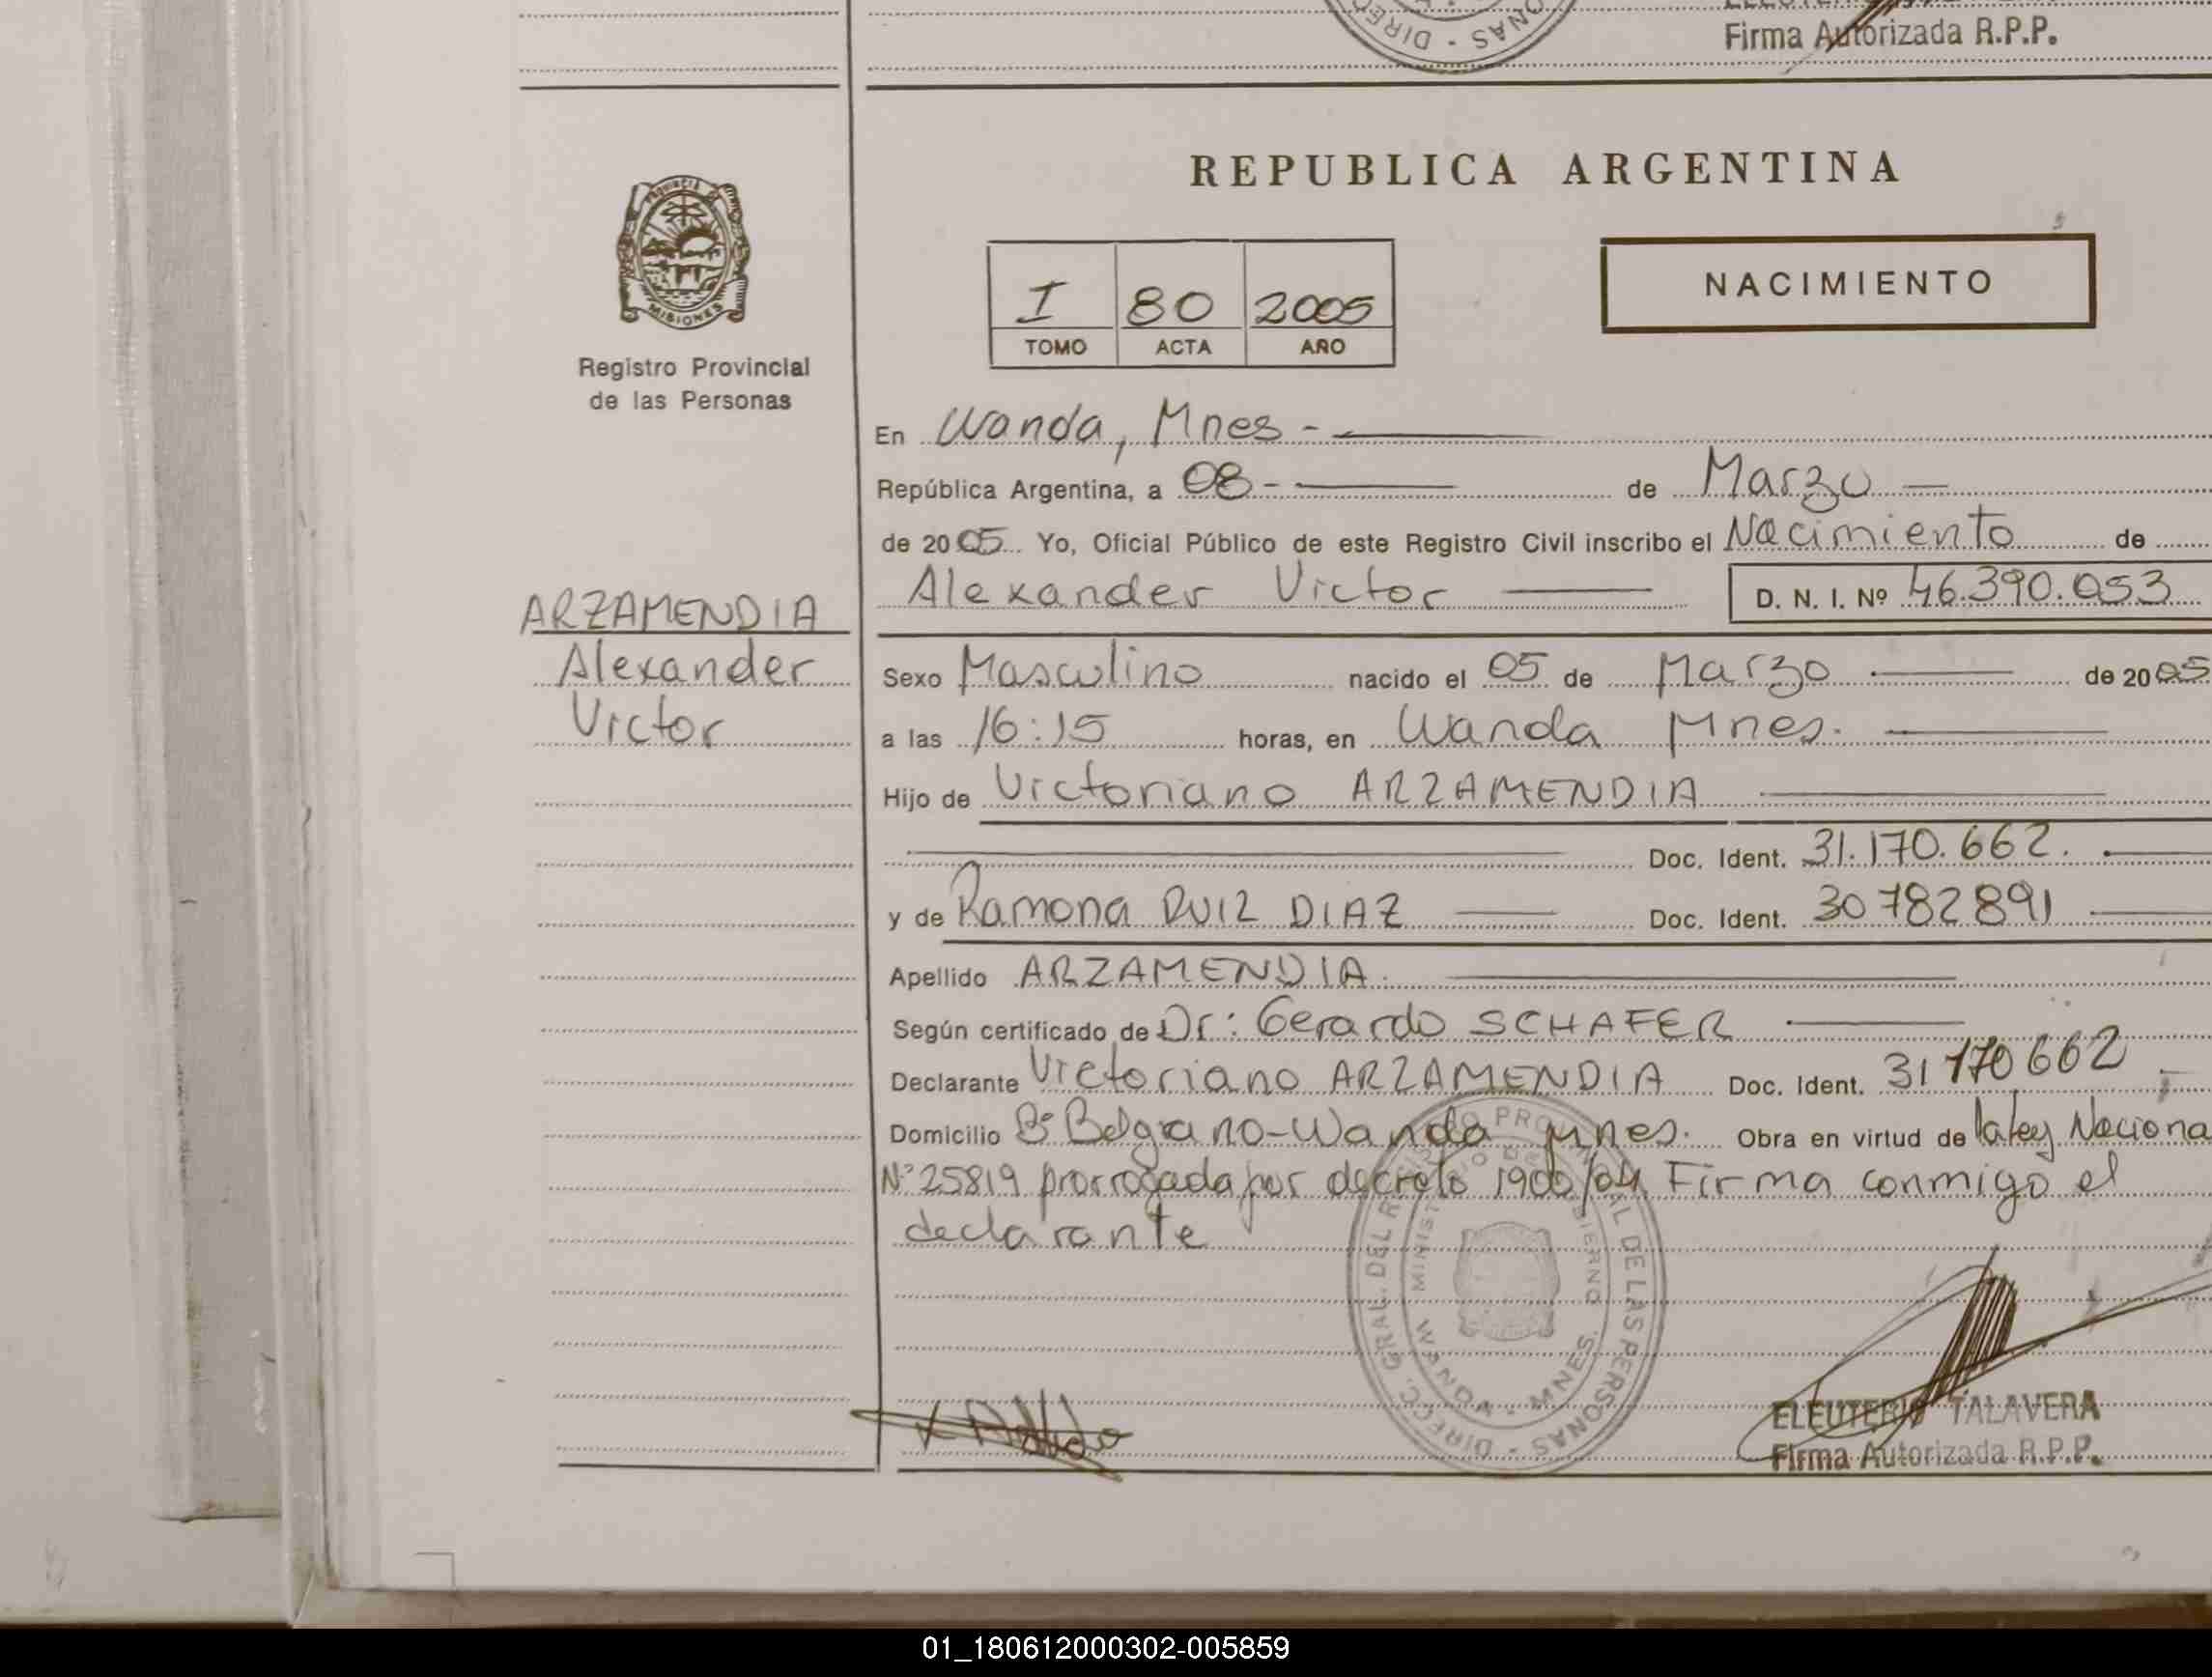 DIREC
ONAS
Firma Autorizada R.P.P.
REPUBLICA ARGENTINA
PROVINCIA DE
MISIONES
Registro Provincial
de las Personas
I 80 2005
TOMO ACTA AÑO
NACIMIENTO
En Wanda, Mnes -
República Argentina, a 08 - de Marzo
de 2005 Yo, Oficial Público de este Registro Civil inscribo el Nacimiento de
Alexander Victor D. N. I. Nº 46.390.053
ARZAMENDIA
Alexander
Victor
Sexo Masculino nacido el 05 de Marzo de 2005
a las 16:15 horas, en Wanda Mnes.
Hijo de Victoriano ARZAMENDIA
Doc. Ident. 31.170.662.
y de Ramona RUIZ DIAZ Doc. Ident. 30782891
Apellido ARZAMENDIA.
Según certificado de Dr: Gerardo SCHAFER
Declarante Victoriano ARZAMENDIA Doc. Ident. 31170662
Domicilio Bº Belgrano-Wanda Mnes. Obra en virtud de la ley Naciona
Nº 25819 prorrogada por decreto 1900/04 Firma conmigo el
declarante
DIRECC. GRAL. DEL REGISTRO PROVINCIAL DE LAS PERSONAS
MINISTERIO DE GOBIERNO
WANDA - MNES.
ELEUTERIO TALAVERA
Firma Autorizada R.P.P.
01_180612000302-005859